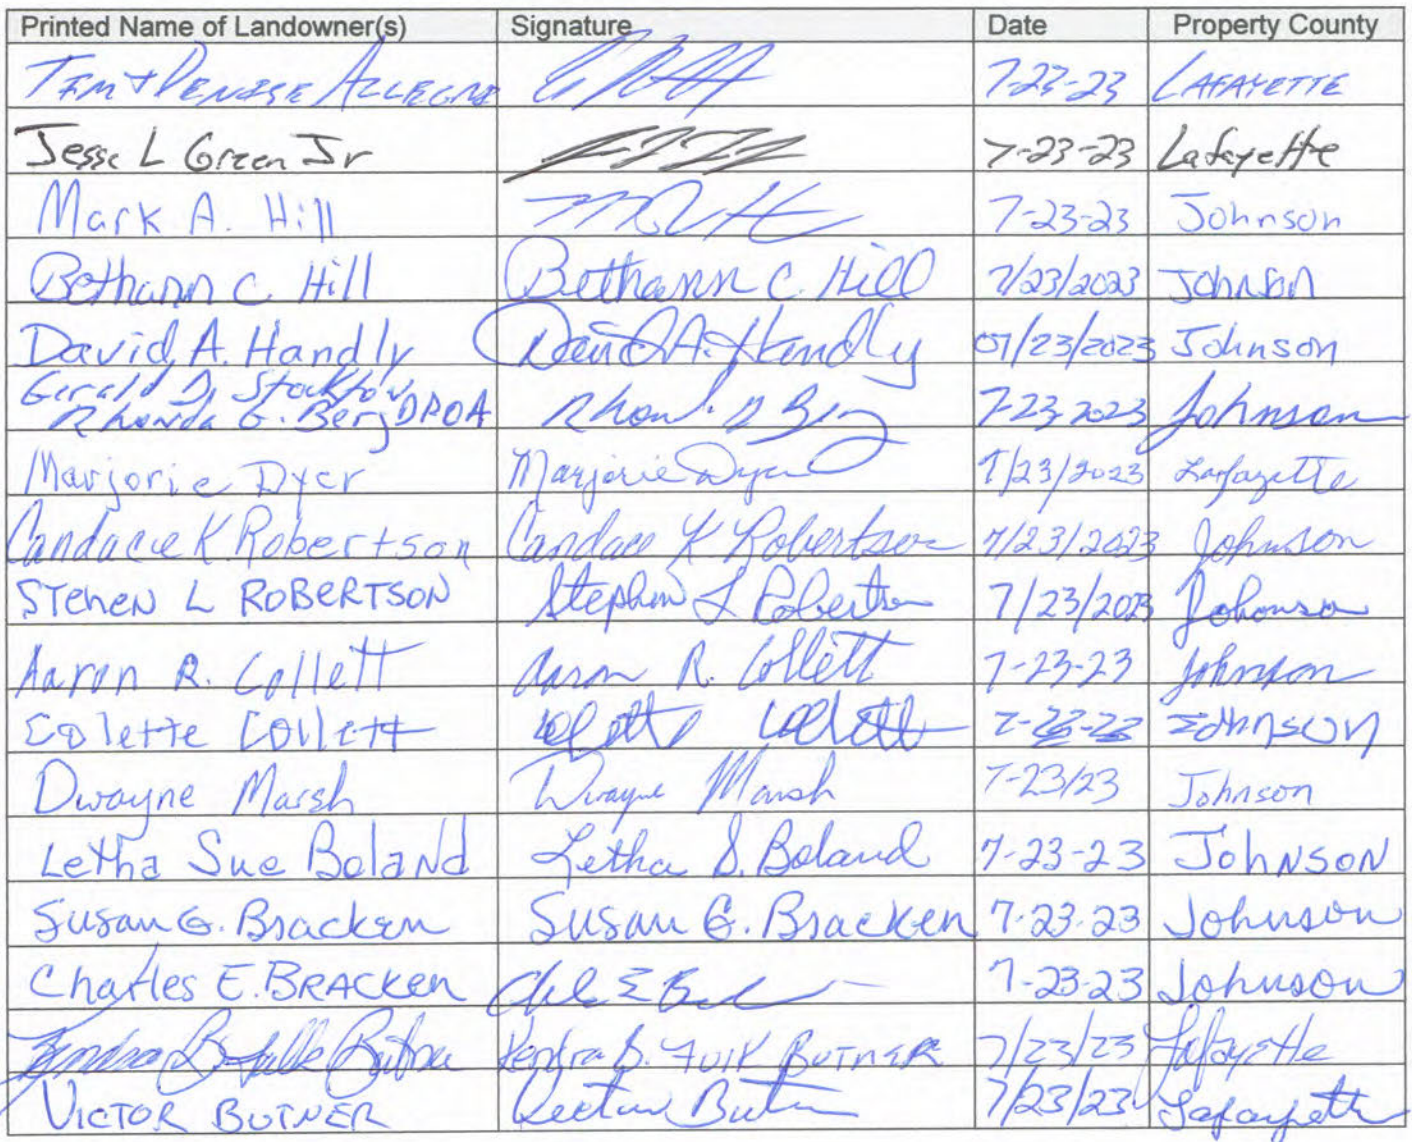 Printed Name of Landowner(s) Signature Date Property County
Tim + Denise Allegri 7-23-23 Lafayette
Jesse L Green Jr 7-23-23 Lafayette
Mark A. Hill 7-23-23 Johnson
Bethann C. Hill Bethann C. Hill 7/23/2023 Johnson
David A. Handly David A. Handly 07/23/2023 Johnson
Gerald D. Stockton
Rhonda G. Berg DPOA Rhonda G Berg 7-23-2023 Johnson
Marjorie Dyer Marjorie Dyer 7/23/2023 Lafayette
Candace K Robertson Candace K. Robertson 7/23/2023 Johnson
STEHEN L ROBERTSON Stephen L Robertson 7/23/2023 Johonson
Aaron R. Collett Aaron R. Collett 7-23-23 Johnson
Colette Collett Colette Collett 7-23-23 Johnson
Dwayne Marsh Dwayne Marsh 7-23/23 Johnson
Letha Sue Boland Letha S. Boland 7-23-23 Johnson
Susan G. Bracken Susan G. Bracken 7-23-23 Johnson
Charles E. Bracken 7-23-23 Johnson
Kendra B. Fulk Butner Kendra B. Fulk Butner 7/23/23 Lafayette
Victor Butner Victor Butner 7/23/23 Lafayette